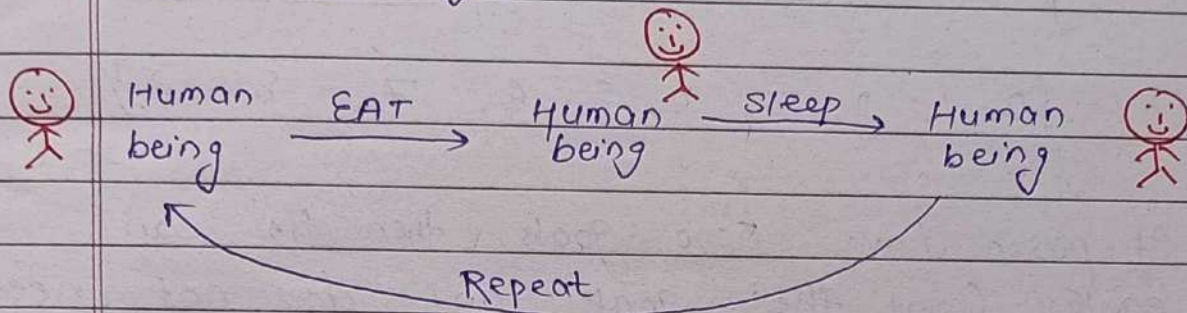 Human being EAT Human being Sleep Human being
Repeat